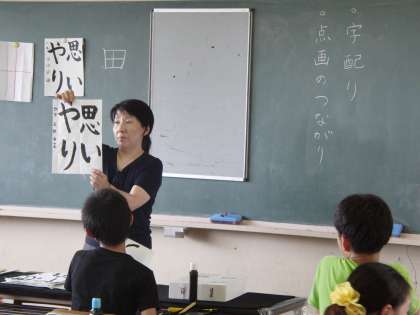 。字配り
。点画のつながり
田
思い
やり
思い
やり